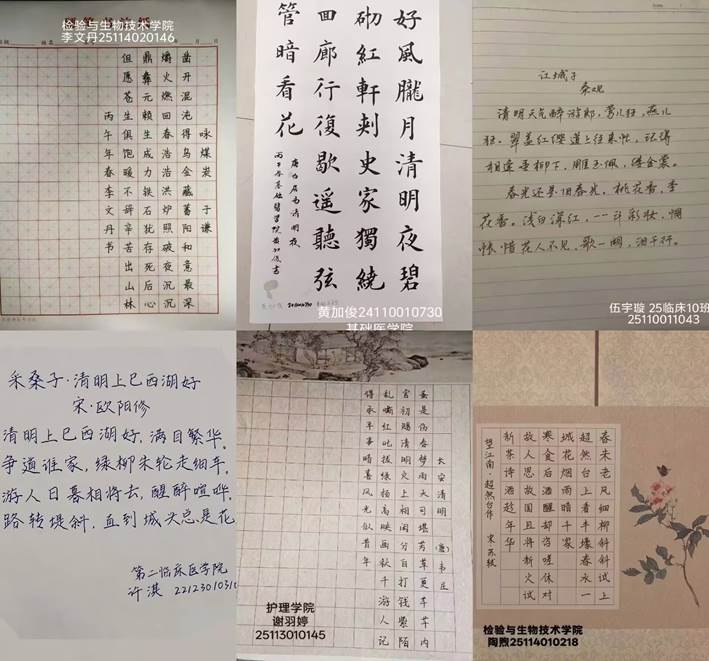 检验与生物技术学院
李文丹25114020146
咏煤炭
于谦
凿开混沌得乌金藏蓄阳和意最深
爝火燃回春浩浩洪炉照破夜沉沉
鼎彝元赖生成力铁石犹存死后心
但愿苍生俱饱暖不辞辛苦出山林
丙午年春李文丹书
好風朧月清明夜碧
砌紅軒刺史家獨繞
回廊行復歇遥聽弦
管暗看花
唐白居易清明夜
丙午春基础醫學院黄加俊書
黄加俊24110010730
基础医学院
江城子
秦观
清明天气醉游郎,莺儿狂,燕儿
狂。翠盖红缨道上往来忙,记得
相逢垂柳下,雕玉佩,缕金裳。
春光还是旧春光,桃花香,李
花香。浅白深红,一一斗新妆,惆
怅惜花人不见,歌一阕,泪千行。
伍宇璇 25临床10班
25110011043
采桑子·清明上巳西湖好
宋·欧阳修
清明上巳西湖好,满目繁华。
争道谁家,绿柳朱轮走钿车。
游人日暮相将去,醒醉喧哗。
路转堤斜,直到城头总是花
第二临床医学院
许淇 2212301031
长安清明
(唐)韦庄
蚤是伤春梦雨天可堪芳草更芊芊内
官初赐清明火上相闲分白打钱紫陌
乱嘶红叱拨绿杨高映画秋千游人记
得承平事暗喜风光似昔年
护理学院
谢羽婷
25113010145
春未老风细柳斜斜试上
超然台上看半壕春水一
城花烟雨暗千家
寒食后酒醒却咨嗟休对
故人思故国且将新火试
新茶诗酒趁年华
望江南·超然台作 宋 苏轼
检验与生物技术学院
陶煦25114010218